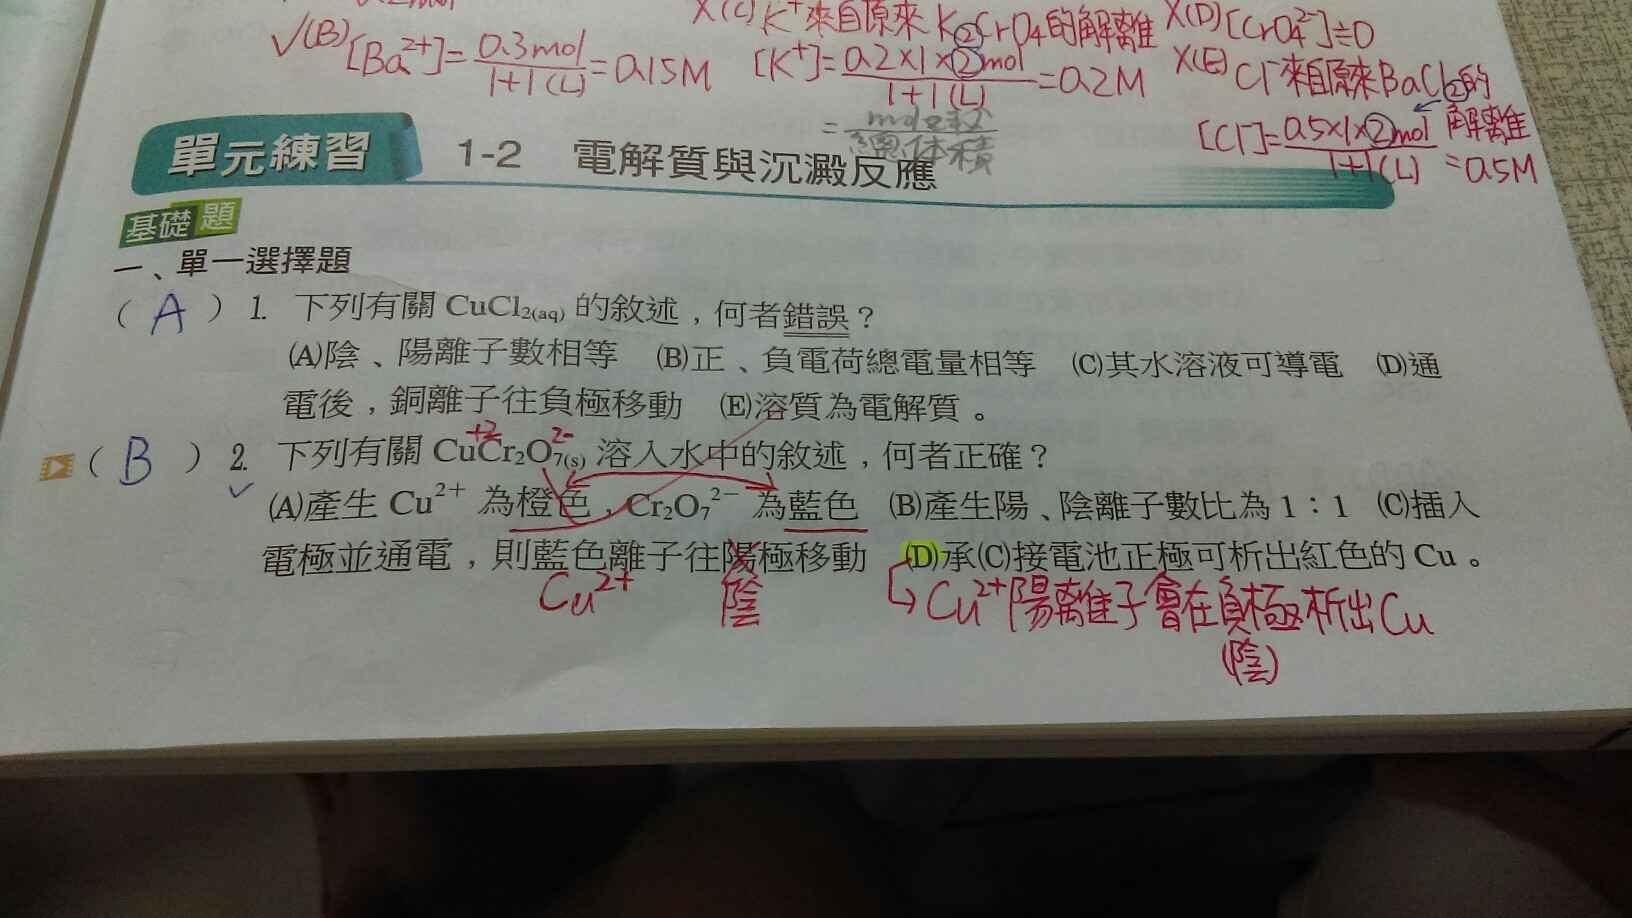 X(C) K⁺來自原來K₂CrO₄的解離
X(D)[CrO₄²⁻]≑0
√(B)[Ba²⁺]=0.3mol/1+1(L)=0.15M
[K⁺]=0.2×1×2mol/1+1(L)=0.2M
X(E) Cl⁻來自原來BaCl₂的解離
=mol數/總体積
[Cl⁻]=0.5×1×2mol/1+1(L)=0.5M
單元練習 1-2 電解質與沉澱反應
基礎題
一、單一選擇題
( A ) 1. 下列有關 CuCl₂(aq) 的敘述，何者錯誤？
(A)陰、陽離子數相等 (B)正、負電荷總電量相等 (C)其水溶液可導電 (D)通
電後，銅離子往負極移動 (E)溶質為電解質。
+2 2-
( B ) 2. 下列有關 CuCr₂O₇(s) 溶入水中的敘述，何者正確？
(A)產生 Cu²⁺ 為橙色，Cr₂O₇²⁻ 為藍色 (B)產生陽、陰離子數比為 1：1 (C)插入
電極並通電，則藍色離子往陽極移動 (D)承(C)接電池正極可析出紅色的 Cu。
Cu²⁺ 陰 Cu²⁺陽離子會在負極析出Cu
(陰)